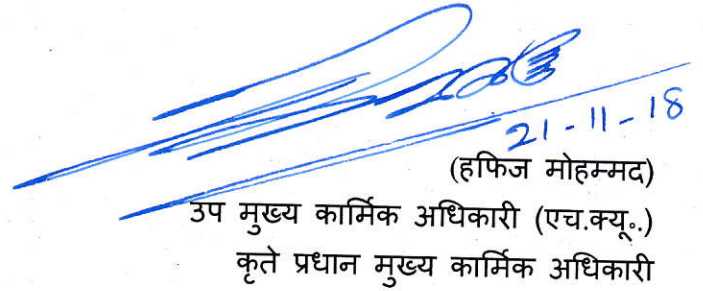 21-11-18
(हफिज मोहम्मद)
उप मुख्य कार्मिक अधिकारी (एच.क्यू॰.)
कृते प्रधान मुख्य कार्मिक अधिकारी